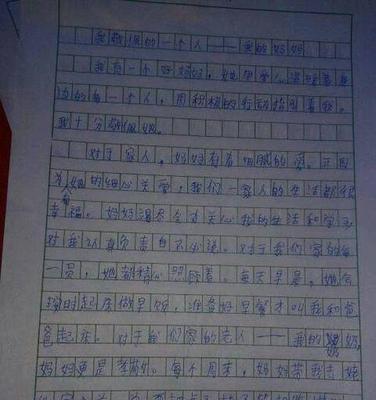 我敬佩的一个人——我的妈妈
我有一个好妈妈，她用爱心温暖着身
边的每一个人，用积极的行动指引着我。
我十分敬佩她。
对于家人，妈妈有着细腻的爱。正因
为她的细心关爱，我们一家人的生活都很
幸福。妈妈总会关心我的生活和学习
对我认真负责自不必说。对于我们家的每
一员，她都精心照顾着。每天早晨，她会
按时起床做早饭，准备好早餐才叫我和爸
爸起床。对于我们家的老人——我的奶奶，
妈妈更是孝敬。每个周末，妈妈带我去